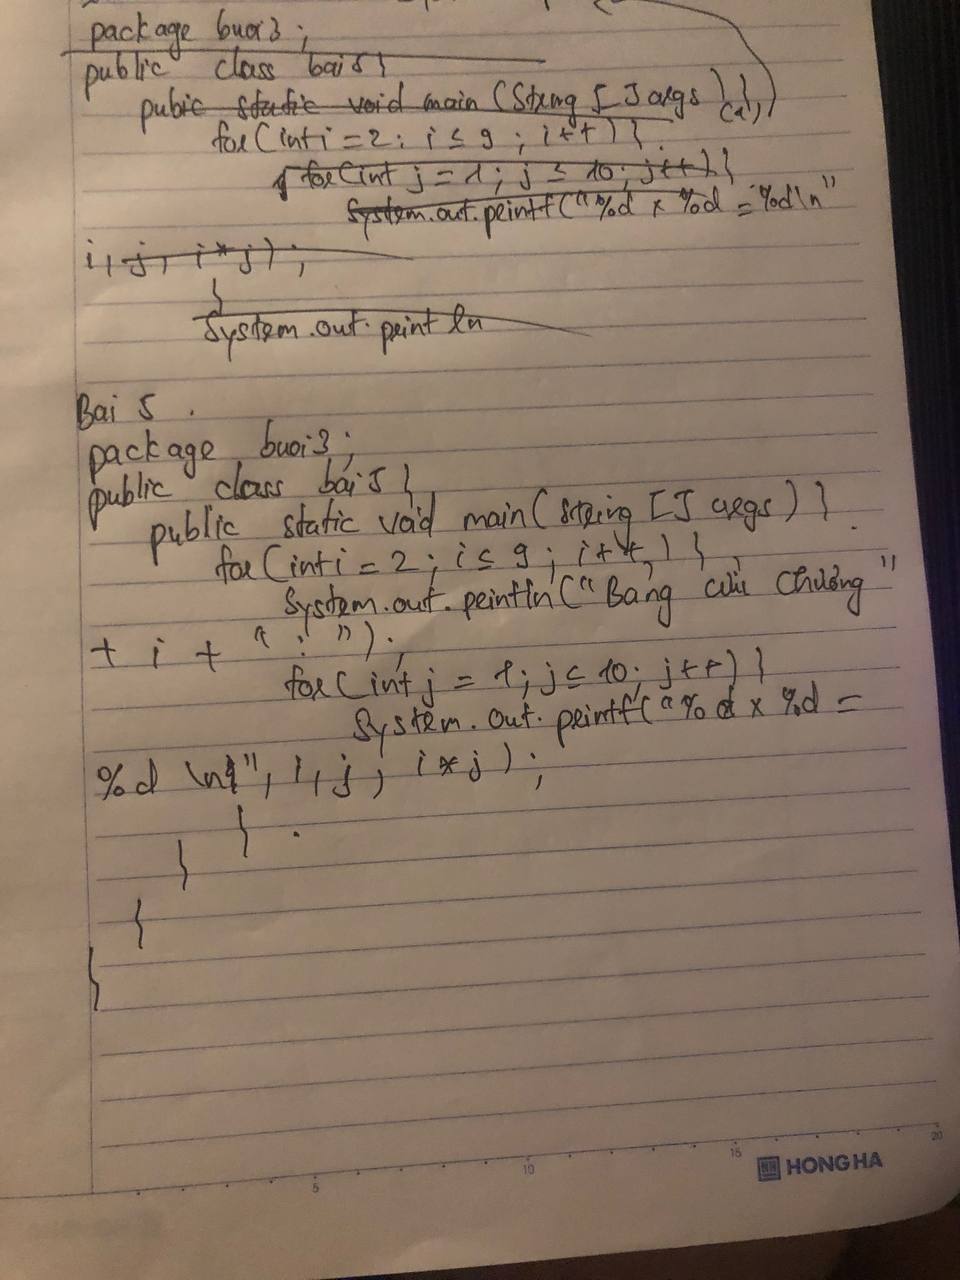 package buoi3;
public class bai5{
pubic static void main (String [] args) {
for (int i = 2; i ≤ 9 ; i++) {
for (int j = 1; j ≤ 10; j++) {
System.out.printf("%d x %d = %d\n"
i, j, i*j);
}
System.out.print ln
Bai 5 .
package buoi3;
public class bai5 {
public static void main (string [] args) {
for (int i = 2; i ≤ 9; i++) {
System.out.println("Bảng cửu chương"
+ i + " : ");
for (int j = 1; j ≤ 10; j++) {
System.out.printf("%d x %d =
%d \n", i, j, i*j);
}
}
}
}
5 10 15 20
HONG HA